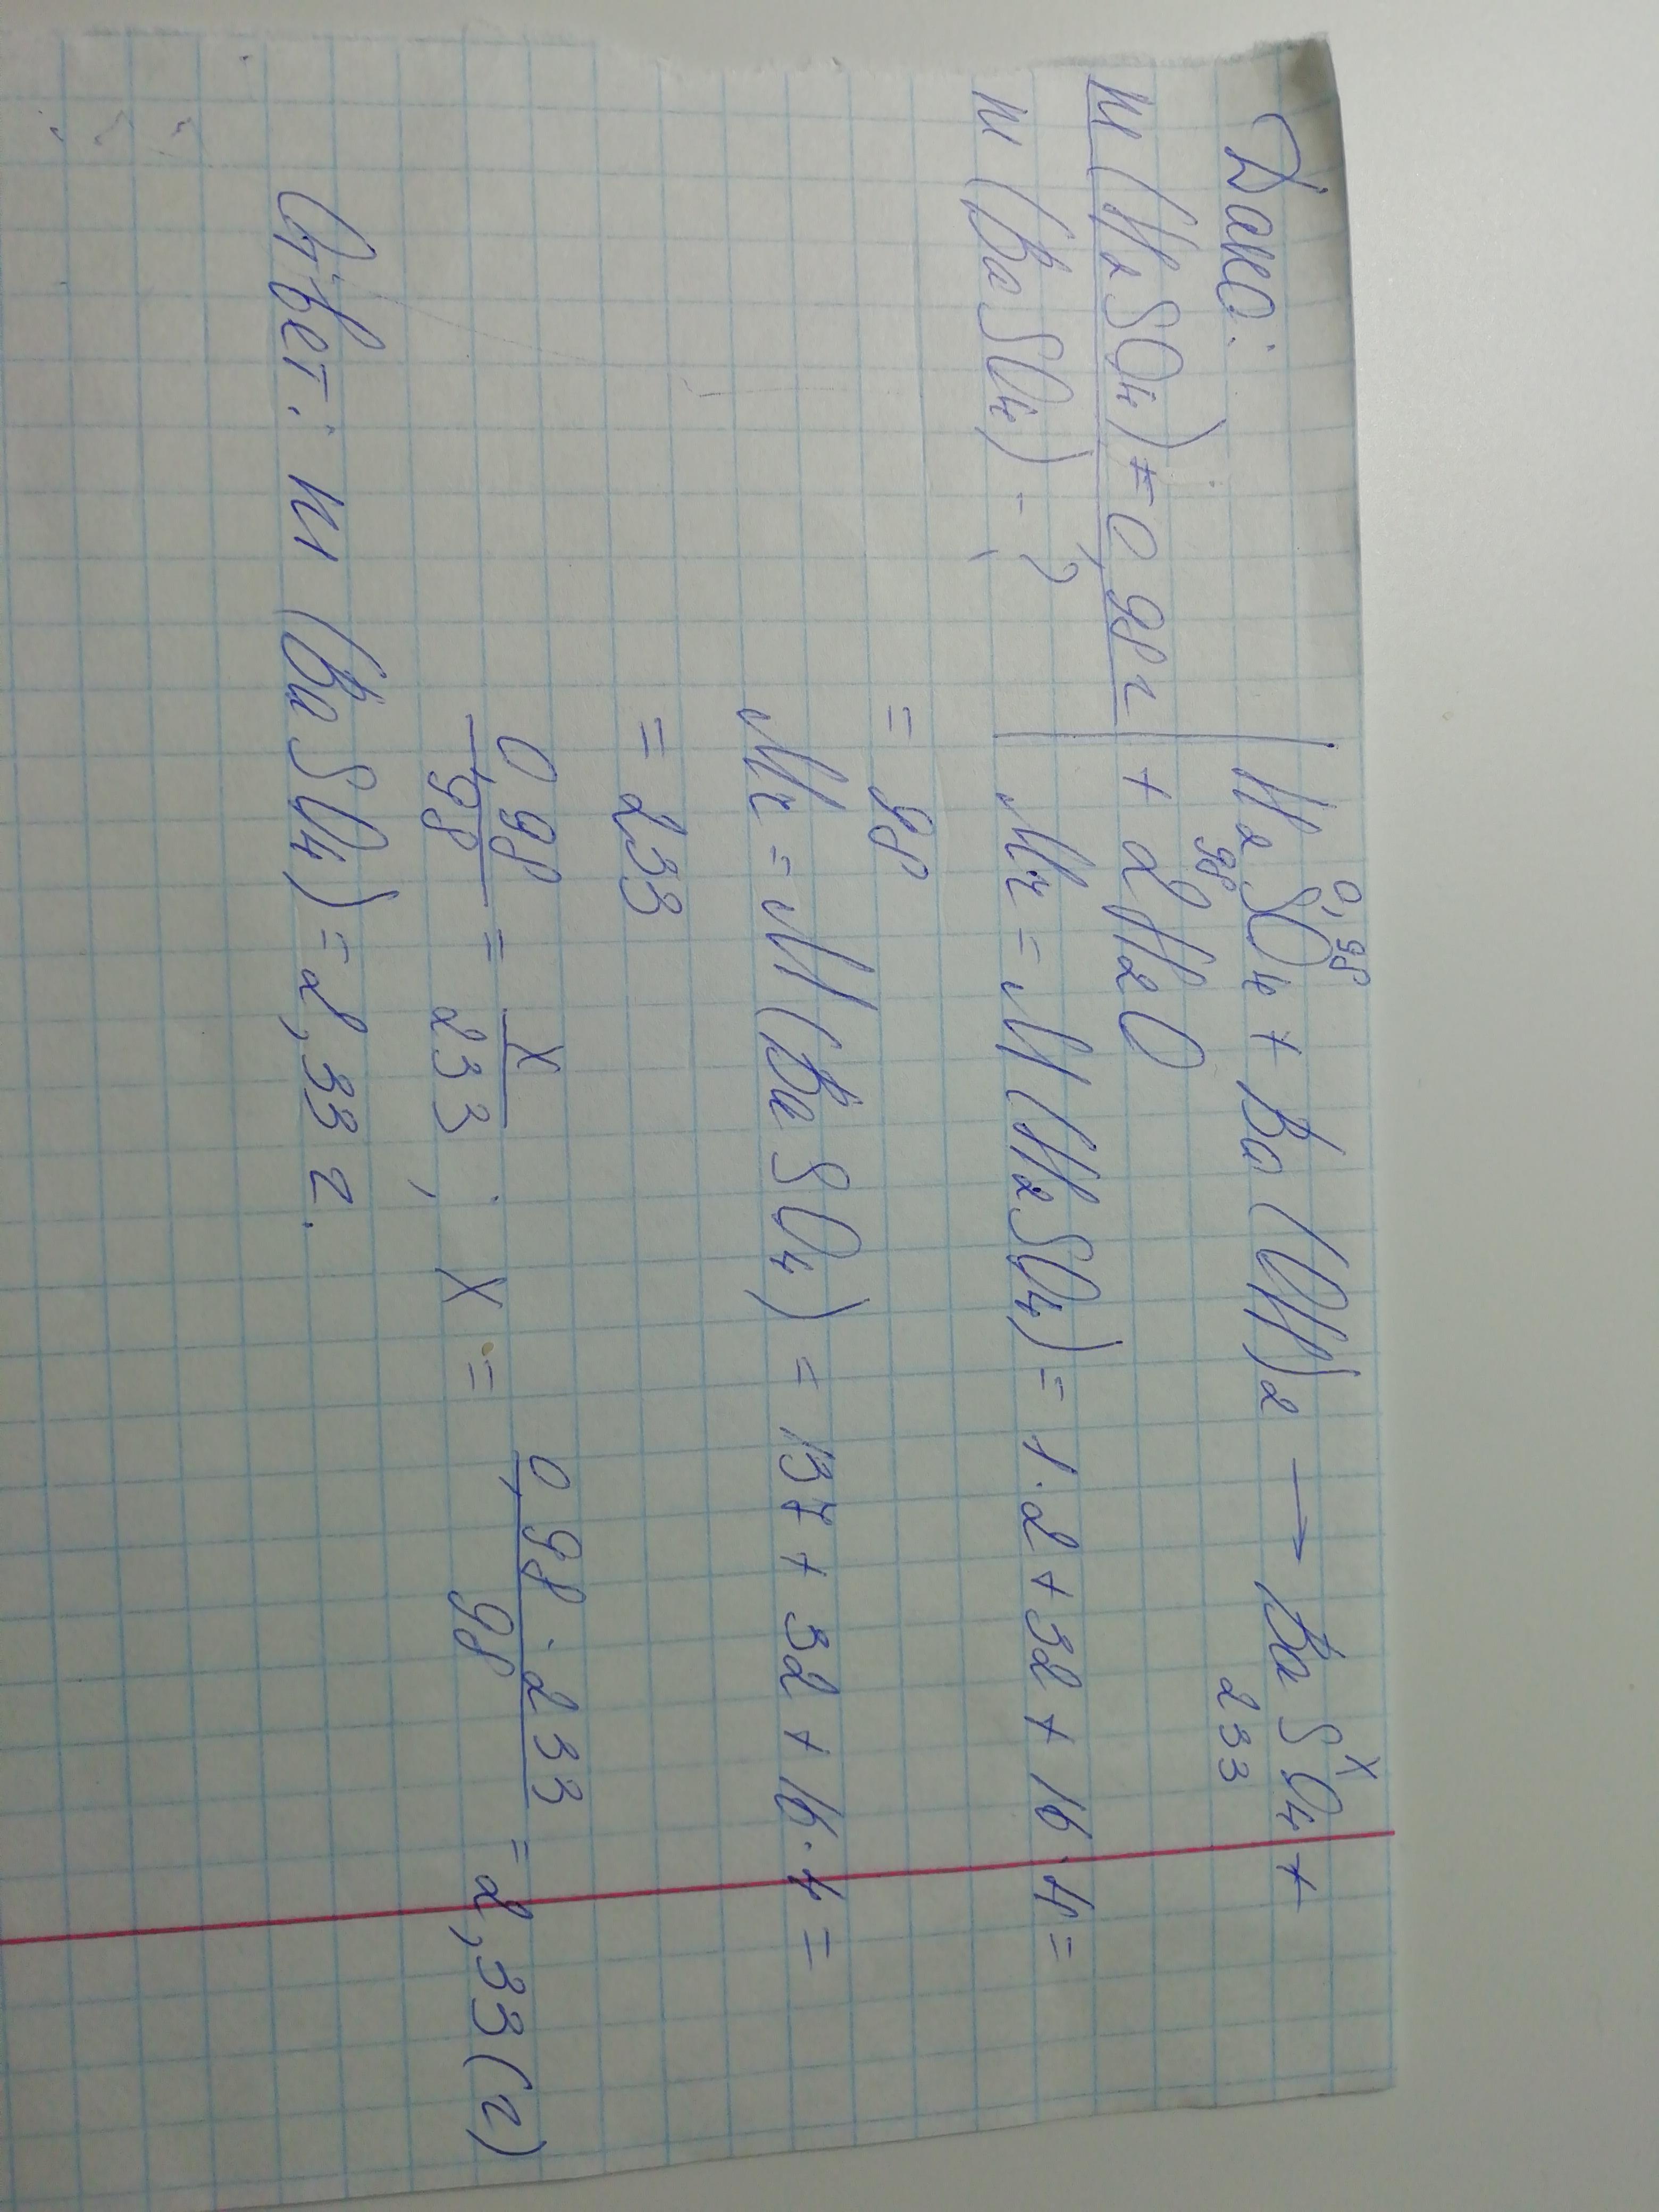 Дано:
m (H₂SO₄) = 0,98 г
m (BaSO₄) - ?
0,98 x
H₂SO₄ + Ba(OH)₂ → BaSO₄ +
98 233
+ 2H₂O
Mr = M (H₂SO₄) = 1·2 + 32 + 16·4 =
= 98
Mr = M (BaSO₄) = 137 + 32 + 16·4 =
= 233
0,98/98 = x/233 ; x = 0,98·233/98 = 2,33 (г)
Ответ: m (BaSO₄) = 2,33 г.